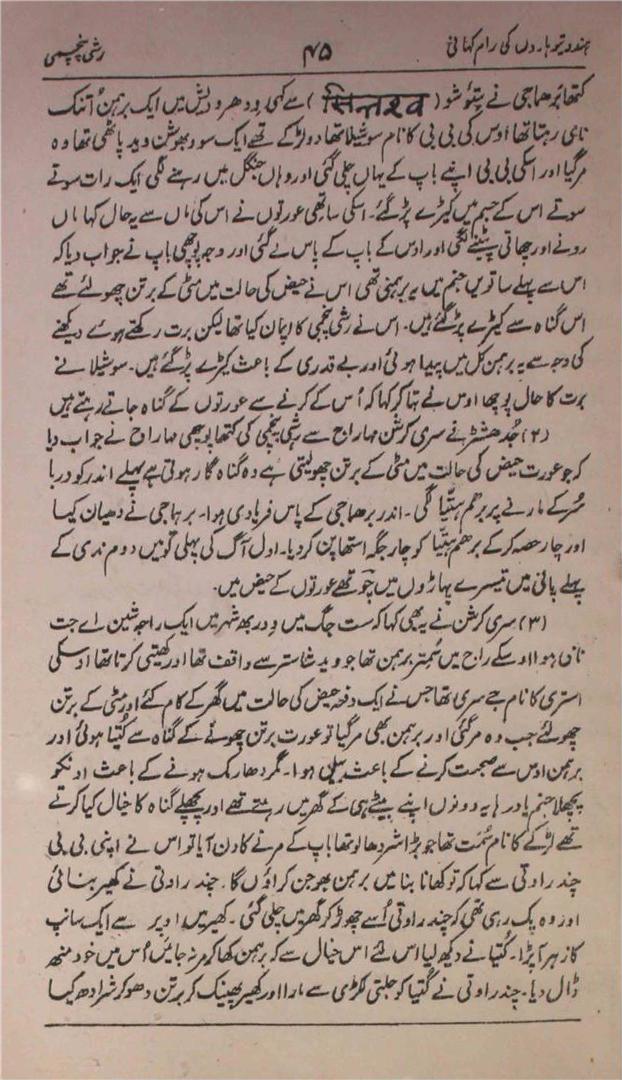 ہندو تیوہاروں کی رام کہانی ۴۵ رشی پنچمی
کتھا برھماجی نے پتؤشو (सिताश्व) سے کہی ودھرو دیش میں ایک برہمن اُتنک
نامی رہتا تھا اوس کی بی بی کا نام سوشیلا تھا دو لڑکے تھے ایک سودبھوشن وید پاٹھی تھا وہ
مر گیا اور اسکی بی بی اپنے باپ کے یہاں چلی گئی اور وہاں جنگل میں رہنے لگی ایک رات سوتے
سوتے اس کے جسم میں کیڑے پڑ گئے۔ اسکی ساتھی عورتوں نے اس کی ماں سے یہ حال کہا ماں
رونے اور چھاتی پیٹنے لگی اور اوس کے باپ کے پاس لے گئی اور وجہ پوچھی باپ نے جواب دیا کہ
اس سے پہلے ساتویں جنم میں یہ برہمنی تھی اس نے حیض کی حالت میں مٹی کے برتن چھو لئے تھے
اس گناہ سے کیڑے پڑ گئے ہیں۔ اس نے رشی پنچمی کا اپمان کیا تھا لیکن برت رکھتے ہوئے دیکھنے
کی وجہ سے یہ برہمن کل میں پیدا ہوئی اور بے قدری کے باعث کیڑے پڑ گئے ہیں۔ سوشیلا نے
برت کا حال پوچھا اوس نے بتا کر کہا کہ اُس کے کرنے سے عورتوں کے گناہ جاتے رہتے ہیں
(۲) جُدھشٹر نے سری کرشن مہاراج سے رشی پنچمی کی کتھا پوچھی مہاراج نے جواب دیا
کہ جو عورت حیض کی حالت میں مٹی کے برتن چھو لیتی ہے وہ گناہ گار ہوتی ہے پہلے اندر کو درتا
سُر کے مارنے پر برھم ہتیّا لگی۔ اندر برھماجی کے پاس فریادی ہوا۔ برہماجی نے دھیان کیا
اور چار حصہ کر کے برھم ہتیّا کو چار جگہ استھاپن کر دیا۔ اول آگ کی پہلی لو میں دوم ندی کے
پہلے پانی میں تیسرے پہاڑوں میں چوتھے عورتوں کے حیض میں۔
(۳) سری کرشن نے یہ بھی کہا کہ ست جگ میں ودربھ شہر میں ایک راجہ شین اے جت
نامی ہوا اوسکے راج میں سُمتر برہمن تھا جو وید شاستر سے واقف تھا اور کھیتی کرتا تھا اوسکی
استری کا نام جے سری تھا جس نے ایک دفعہ حیض کی حالت میں گھر کے کام کئے اور مٹی کے برتن
چھو لئے جب وہ مر گئی اور برہمن بھی مر گیا تو عورت برتن چھونے کے گناہ سے کُتیا ہوئی اور
برہمن اوس سے صحبت کرنے کے باعث بیل ہوا۔ مگر دھارمک ہونے کے باعث اونکو
پچھلا جنم یاد رہا یہ دونوں اپنے بیٹے ہی کے گھر میں رہتے تھے اور پچھلے گناہ کا خیال کیا کرتے
تھے لڑکے کا نام سُمت تھا جو بڑا شردھالو تھا باپ کے مرنے کا دن آیا تو اس نے اپنی بی بی
چندراوتی سے کہا کہ تو کھانا بنا میں برہمن بھوجن کراؤں گا۔ چندراوتی نے کھیر بنائی
اور وہ پک رہی تھی کہ چندراوتی اُسے چھوڑ کر گھر میں چلی گئی۔ کھیر میں اوپر سے ایک سانپ
کا زہر آ پڑا۔ کُتیا نے دیکھ لیا اس لئے اس خیال سے کہ برہمن کھا کر مر نہ جائیں اُس میں خود منھ
ڈال دیا۔ چندراوتی نے کُتیا کو جلتی لکڑی سے مارا اور کھیر پھینک کر برتن دھو کر شرادھ کیا